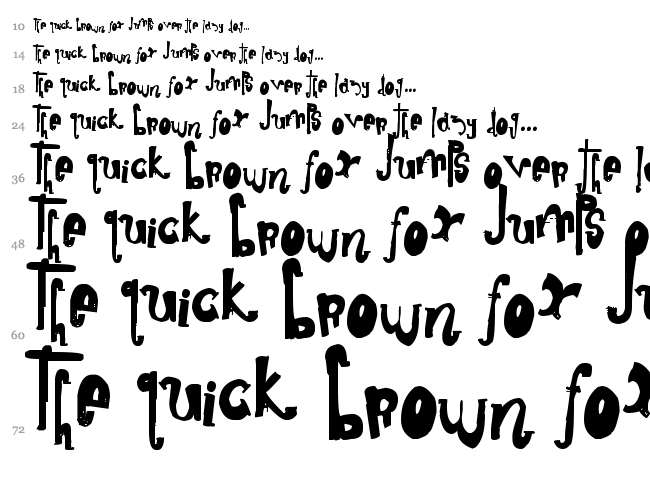 10 The quick brown fox Jumps over the lazy dog...
14 The quick brown fox Jumps over the lazy dog...
18 The quick brown fox Jumps over the lazy dog...
24 The quick brown fox Jumps over the lazy dog...
36 The quick brown fox Jumps over the l
48 The quick brown fox Jumps o
60 The quick brown fox Ju
72 The quick brown fox